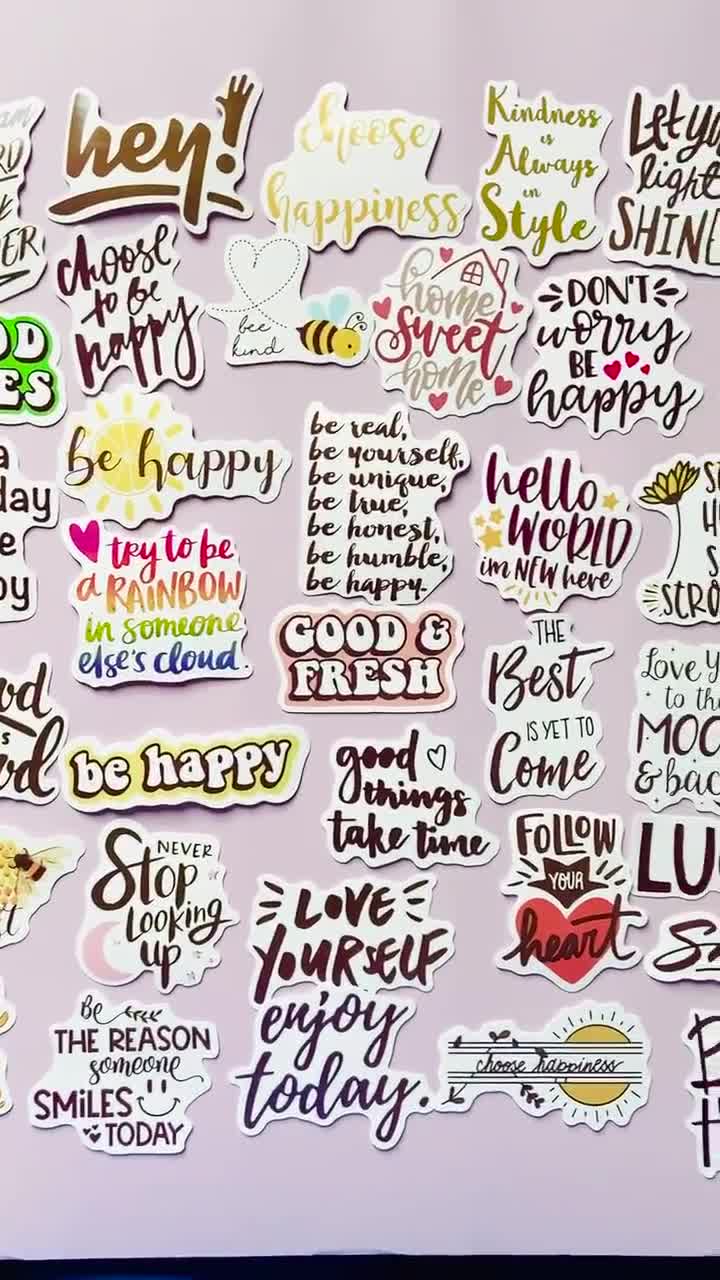 hey!
choose
happiness
Kindness
is
Always
in
Style
light
SHINE
choose
to be
happy
bee
kind
home
sweet
home
DON'T
worry
BE
happy
be happy
be real,
be yourself,
be unique,
be true,
be honest,
be humble,
be happy.
hello
WORLD
im NEW here
try to be
a RAINBOW
in someone
else's cloud.
GOOD &
FRESH
THE
Best
IS YET TO
Come
Love
to the
MOO
& back
be happy
good
things
take time
NEVER
Stop
Looking
up
LOVE
YOURSELF
FOLLOW
YOUR
heart
Be
THE REASON
someone
SMiLES
TODAY
enjoy
today.
choose happiness